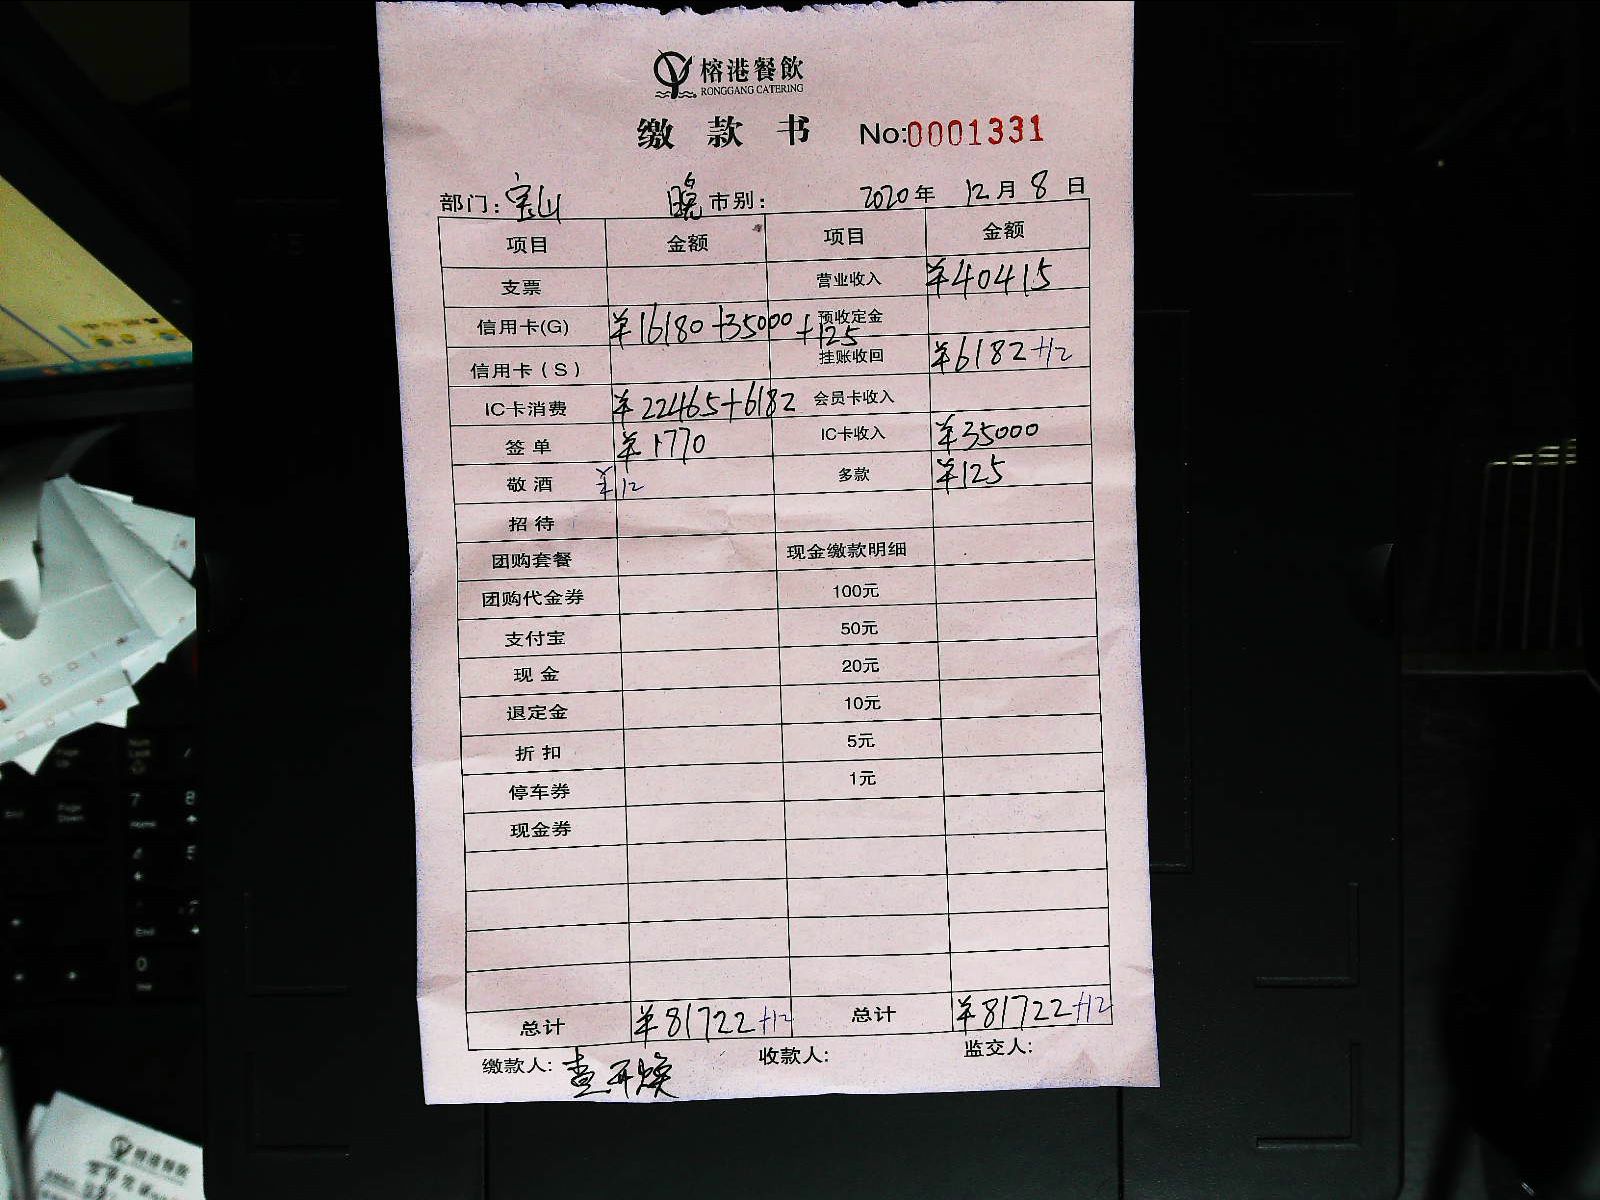 榕港餐飲
RONGGANG CATERING
缴款书 No:0001331
部门：宝山 晚市别： 2020年 12月8日
项目 金额 项目 金额
支票 营业收入 ¥40415
信用卡(G) ¥16180+35000+125 预收定金
信用卡（S） 挂账收回 ¥6182+12
IC卡消费 ¥22465+6182 会员卡收入
签单 ¥1770 IC卡收入 ¥35000
敬酒 ¥12 多款 ¥125
招待
团购套餐 现金缴款明细
团购代金券 100元
支付宝 50元
现金 20元
退定金 10元
折扣 5元
停车券 1元
现金券
总计 ¥81722+12 总计 ¥81722+12
缴款人: 查 收款人: 监交人:
榕港餐飲